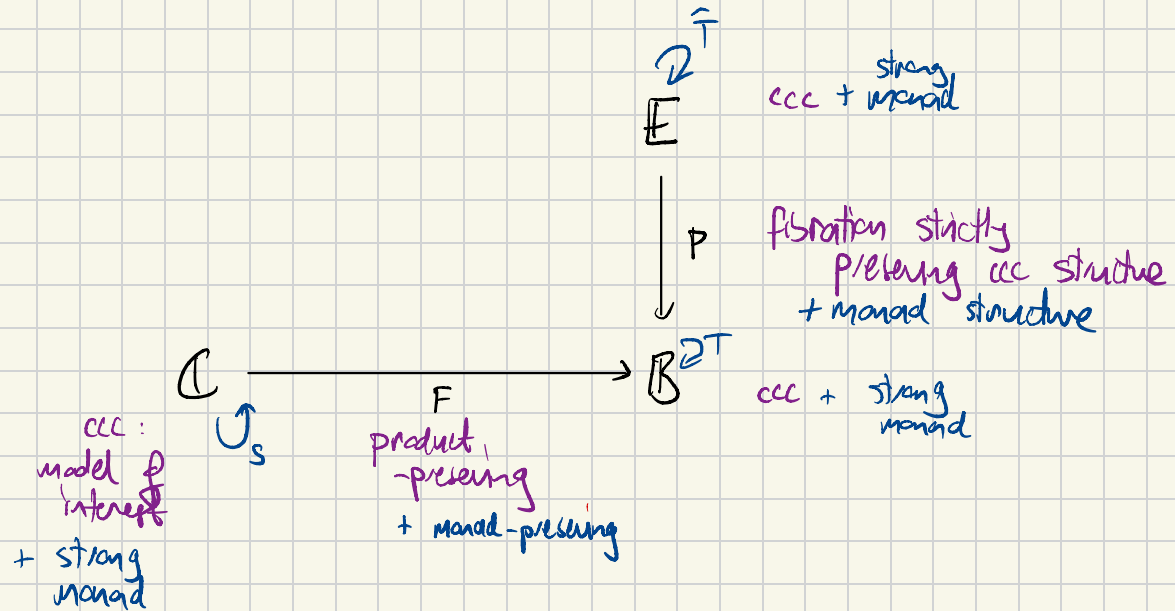 T̂
strong
ccc + monad
E
fibration strictly
preserving ccc structure
+ monad structure
P
C
F
B
T
ccc + strong
monad
S
ccc :
model of
interest
+ strong
monad
product
-preserving
+ monad-preserving